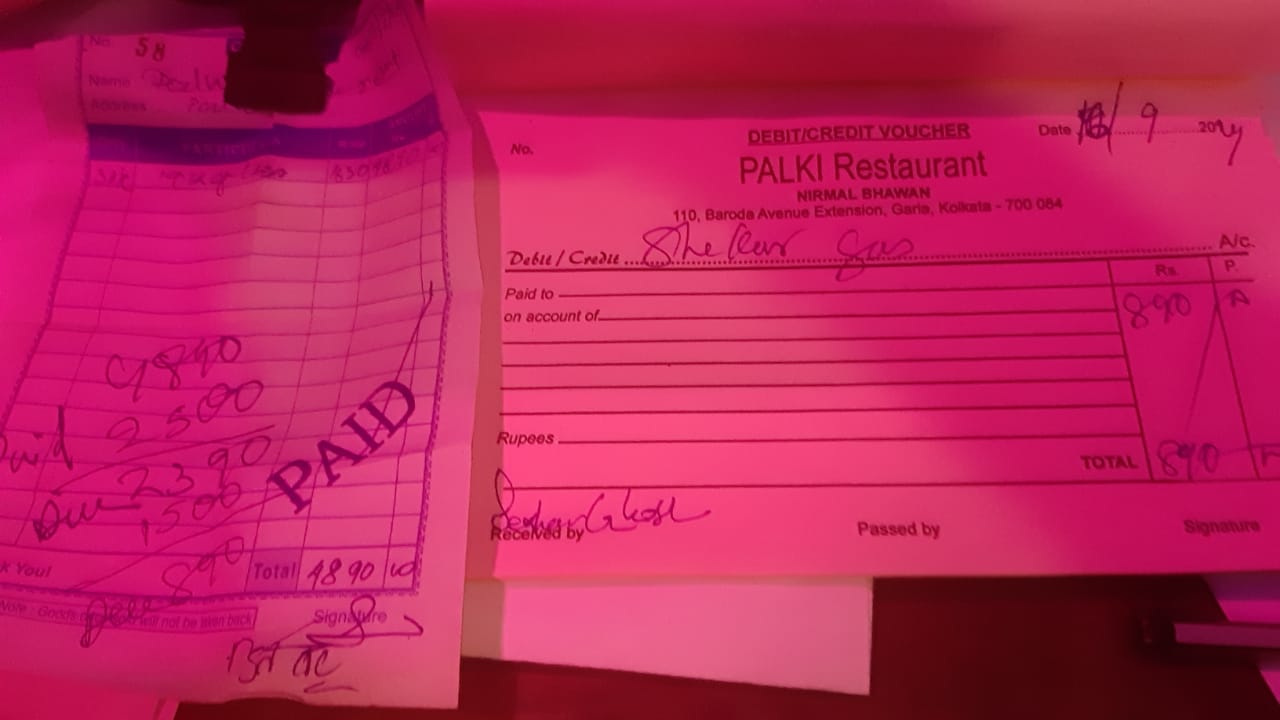 No. 58
Name
Address
PARTICULARS
4890
Paid 2500
Due 2390
1500
Due 890
PAID
k You!
Total 4890
Note : Goods will not be taken back
Signature
DEBIT/CREDIT VOUCHER
No.
Date 9 2024
PALKI Restaurant
NIRMAL BHAWAN
110, Baroda Avenue Extension, Garia, Kolkata - 700 084
Debit / Credit Shekar Gas A/c.
Rs. P.
Paid to
890
on account of
Rupees
TOTAL 890
Ghosh
Received by
Passed by
Signature